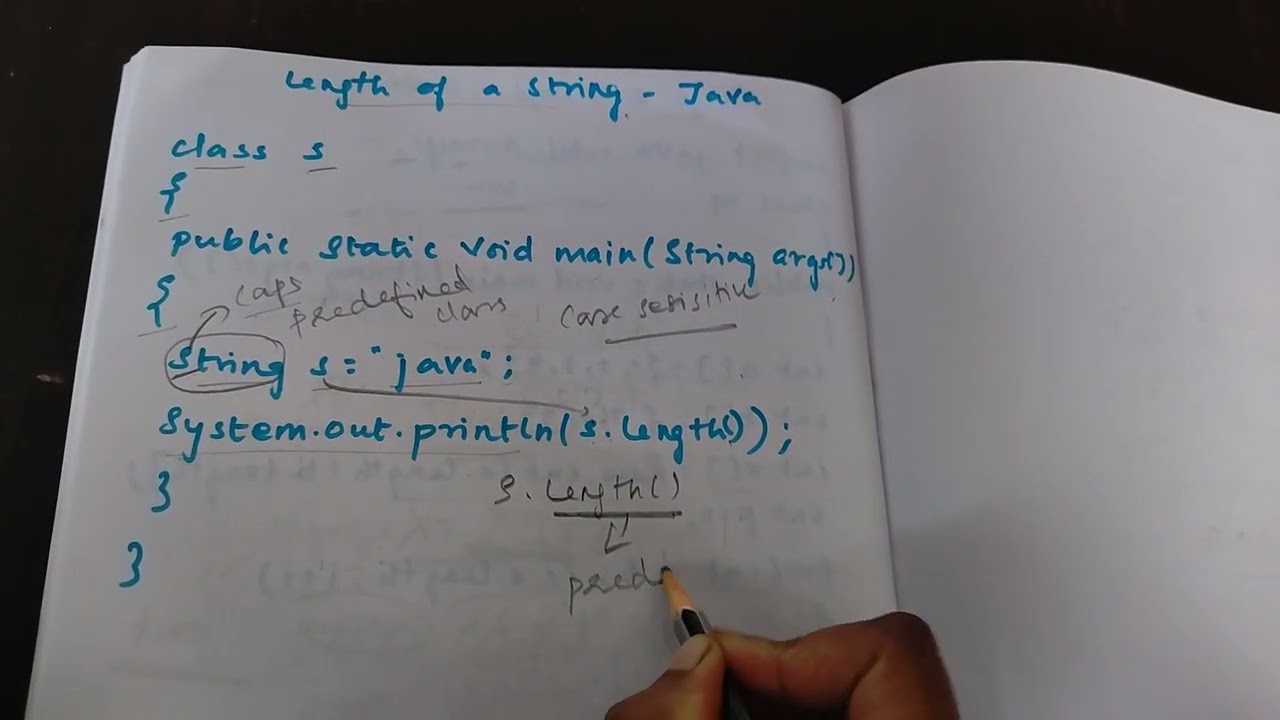 Length of a string - Java
class s
{
public static void main(String args[])
{
caps
predefined
class
case sesisitive
String s="java";
System.out.println(s.length());
}
s.length()
}
pred